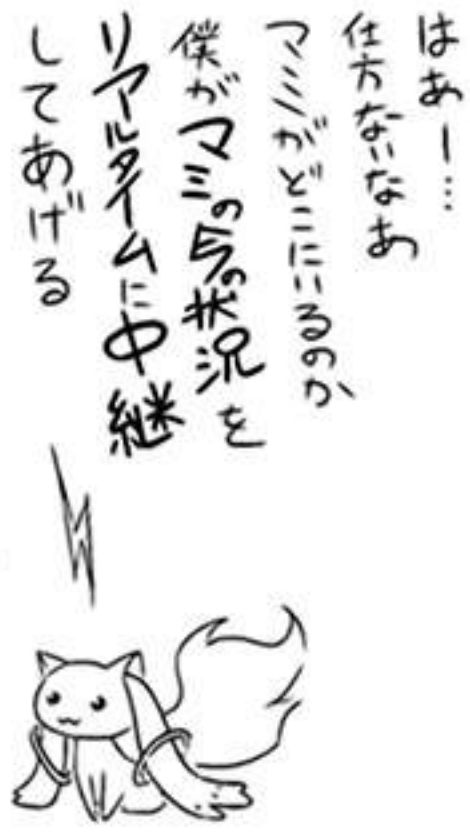 はあー…
仕方ないなあ
マミがどこにいるのか
僕がマミの今の状況を
リアルタイムに中継
してあげる